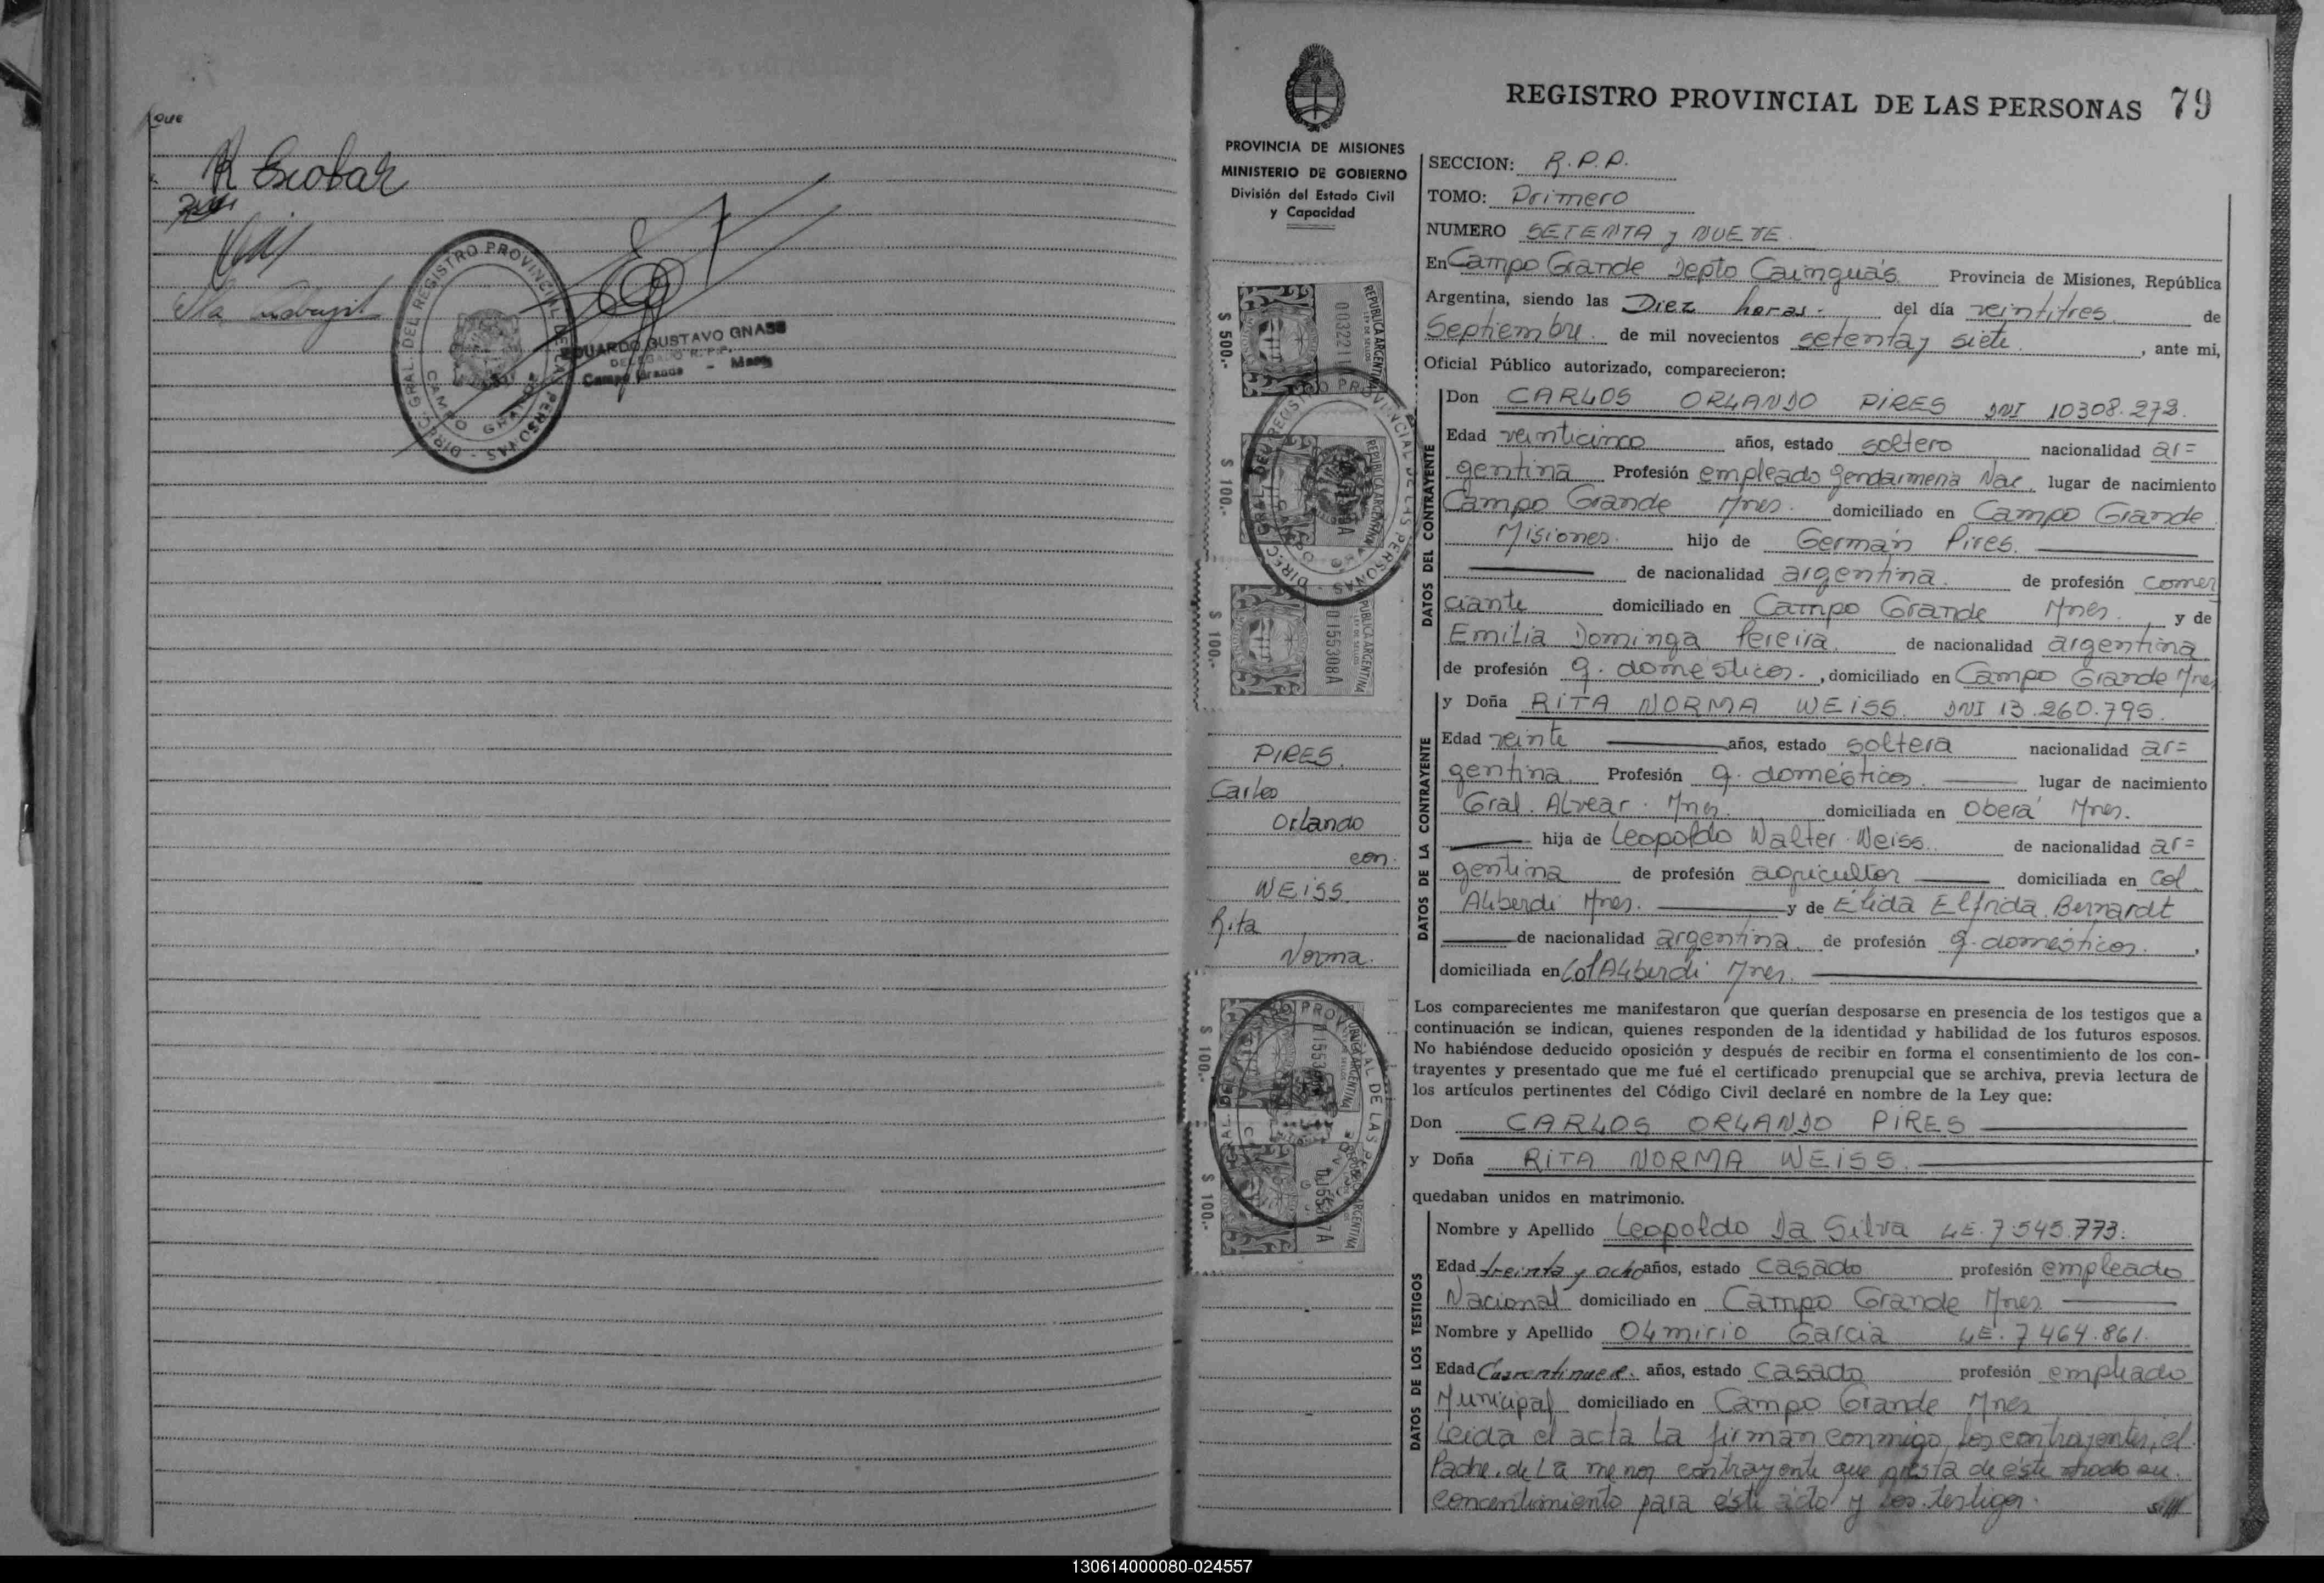 que
R Escobar
DIREC. GRAL. DEL REGISTRO PROVINCIAL DE LAS PERSONAS
CAMPO GRANDE
EDUARDO GUSTAVO GNASS
DELEGADO R.P.P.
Campo Grande - Mnes
REGISTRO PROVINCIAL DE LAS PERSONAS 79
PROVINCIA DE MISIONES
MINISTERIO DE GOBIERNO
División del Estado Civil
y Capacidad
$ 500.-
REPUBLICA ARGENTINA
$ 100.-
REPUBLICA ARGENTINA
$ 100.-
01553088A
REPUBLICA ARGENTINA
DIREC. GRAL. DEL REGISTRO PROVINCIAL DE LAS PERSONAS
CAMPO GRANDE
PIRES.
Carlos
Orlando
con.
WEISS.
Rita
Norma.
$ 100.-
$ 100.-
SECCION: R.P.P.
TOMO: Primero
NUMERO SETENTA y NUEVE.
En Campo Grande Depto Cainguás. Provincia de Misiones, República
Argentina, siendo las Diez horas.- del día veintitres. de
Septiembre. de mil novecientos setenta y siete. , ante mi,
Oficial Público autorizado, comparecieron:
DATOS DEL CONTRAYENTE
Don CARLOS ORLANDO PIRES DNI 10308.272.
Edad veinticinco años, estado soltero nacionalidad ar=
gentina Profesión empleado Gendarmeria Nac. lugar de nacimiento
Campo Grande Mnes. domiciliado en Campo Grande
Misiones. hijo de Germán Pires.
de nacionalidad argentina. de profesión comer
ciante domiciliado en Campo Grande Mnes. , y de
Emilia Dominga Pereira. de nacionalidad argentina.
de profesión q. domésticos. , domiciliado en Campo Grande Mnes
DATOS DE LA CONTRAYENTE
y Doña RITA NORMA WEISS. DNI 13.260.795.
Edad veinte años, estado soltera nacionalidad ar=
gentina. Profesión q. domésticos. lugar de nacimiento
Gral. Alvear. Mnes. domiciliada en Oberá Mnes.
hija de Leopoldo Walter Weiss. de nacionalidad ar=
gentina de profesión agricultor domiciliada en Col.
Aliberdi Mnes. y de Elida Elfrida Bernardt
de nacionalidad argentina. de profesión q. domésticos. ,
domiciliada en Col Aliberdi Mnes.
Los comparecientes me manifestaron que querían desposarse en presencia de los testigos que a
continuación se indican, quienes responden de la identidad y habilidad de los futuros esposos.
No habiéndose deducido oposición y después de recibir en forma el consentimiento de los con-
trayentes y presentado que me fué el certificado prenupcial que se archiva, previa lectura de
los artículos pertinentes del Código Civil declaré en nombre de la Ley que:
Don CARLOS ORLANDO PIRES
y Doña RITA NORMA WEISS.
quedaban unidos en matrimonio.
DATOS DE LOS TESTIGOS
Nombre y Apellido Leopoldo Da Silva LE. 7.545.773.
Edad treinta y ocho años, estado casado profesión empleado
Nacional domiciliado en Campo Grande Mnes
Nombre y Apellido Olmirio Garcia LE. 7464.861.
Edad Cuarentinueve. años, estado casado profesión empleado
Municipal domiciliado en Campo Grande Mnes
Leida el acta la firman conmigo los contrayentes, el
Padre de La menor contrayente que presta de este modo su.
concentimiento para este acto y los testigos.
130614000080-024557